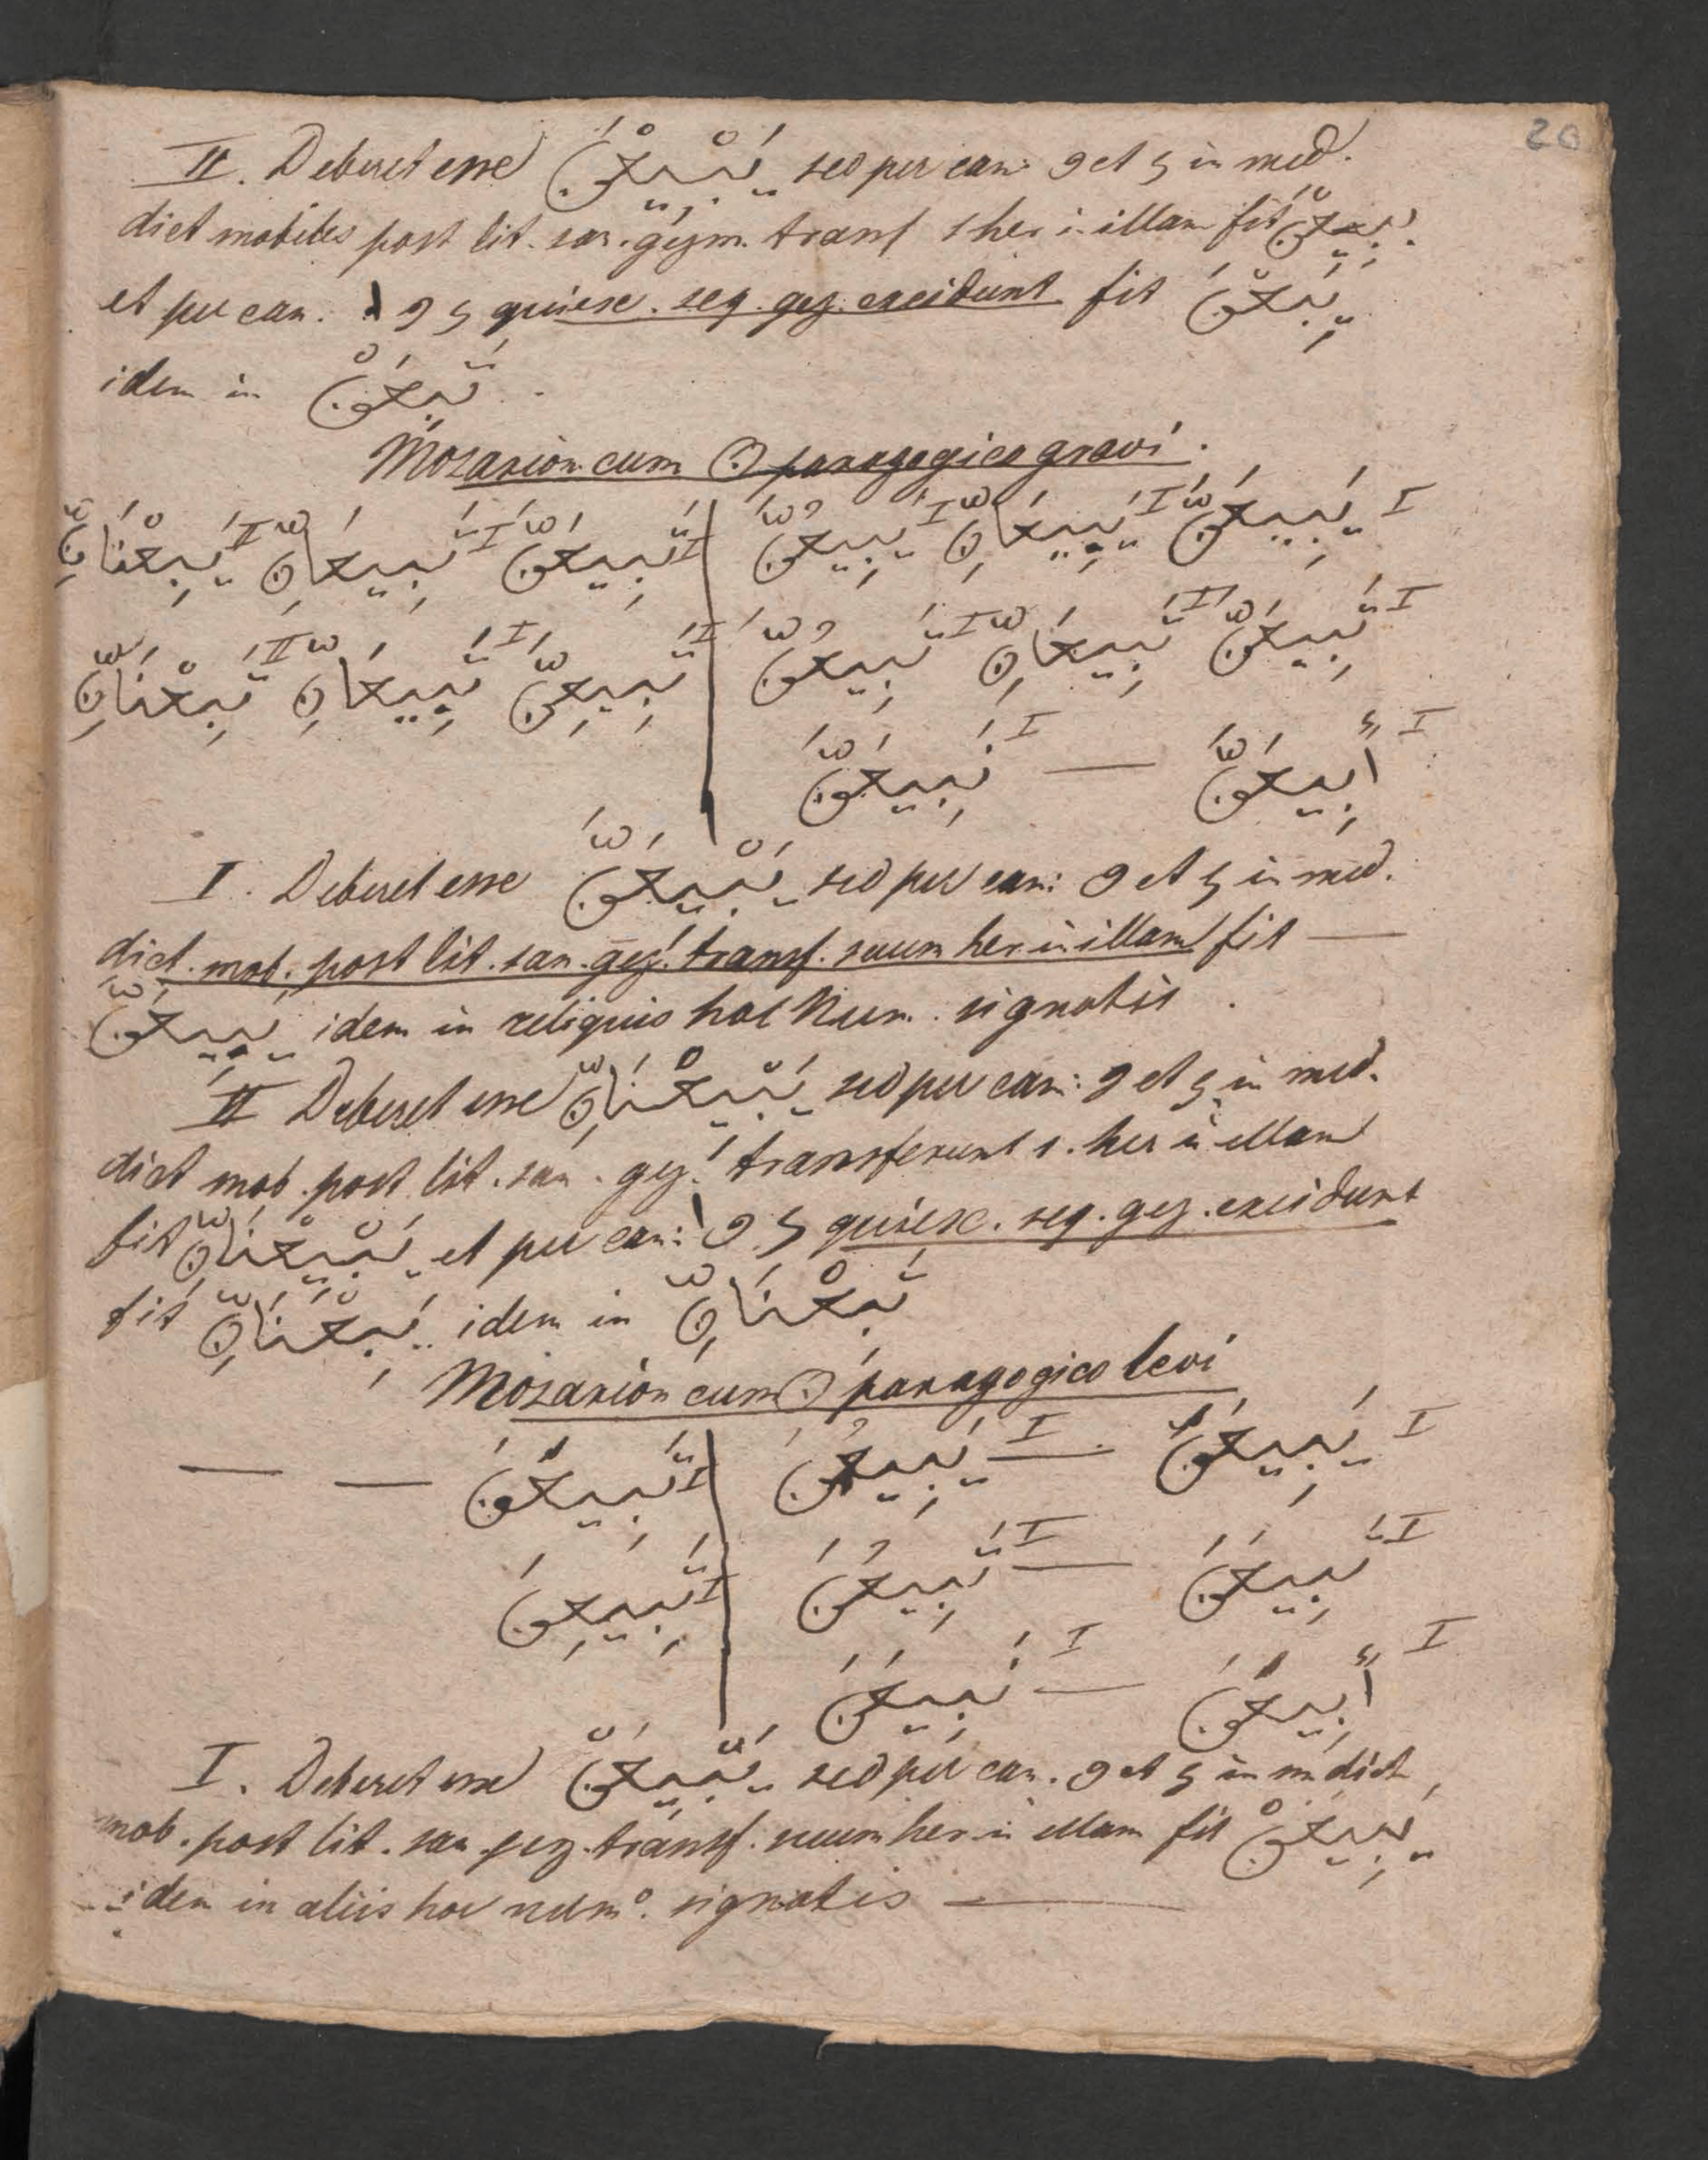 20
II. Deberet esse يَبْيِعْنَ sed per can: و et ي in med.
dict mobiles post lit. san. gezm. transf s her in illam fit يَبِيْعْنَ
et per can. ا و ي quiesc. seq. gez. excidunt fit يَبِعْنَ
idem in تَبِعْنَ .
Mozarion cum ن paragogico gravi.
I يَبِيعَنَّ I يَبِيعَانِّ I يَبِيعُنَّ I تَبِيعَنَّ I تَبِيعَانِّ II يَبِعْنَانِّ
I تَبِيعَنَّ I تَبِيعَانِّ I تَبِيعُنَّ I تَبِيعِنَّ I تَبِيعَانِّ II تَبِعْنَانِّ
I أَبِيعَنَّ — I نَبِيعَنَّ
I. Deberet esse يَبْيِعَنَّ sed per can: و et ي in med.
dict. mob. post lit. san. gez. transf. suum her in illam fit —
يَبِيعَنَّ idem in reliquis hoc Num. signatis .
II Deberet esse يَبْيِعْنَانِّ sed per can: و et ي in med.
dict mob. post lit. san. gez. transferunt s. her in illam
fit يَبِيْعْنَانِّ et per can: ا و ي quiesc. seq. gez. excidunt
fit يَبِعْنَانِّ idem in تَبِعْنَانِّ
Mozarion cum ن paragogico levi
I يَبِيعَنَ — I يَبِيعُنَ I تَبِيعَنَ — —
I تَبِيعَنَ — I تَبِيعُنَ I تَبِيعِنَ
I أَبِيعَنَ — I نَبِيعَنَ
I. Deberet esse يَبْيِعَنْ sed per can. و et ي in m dict
mob. post lit. san. gez. transf. suum her in illam fit يَبِيعَنْ
idem in aliis hoc num°. signatis —